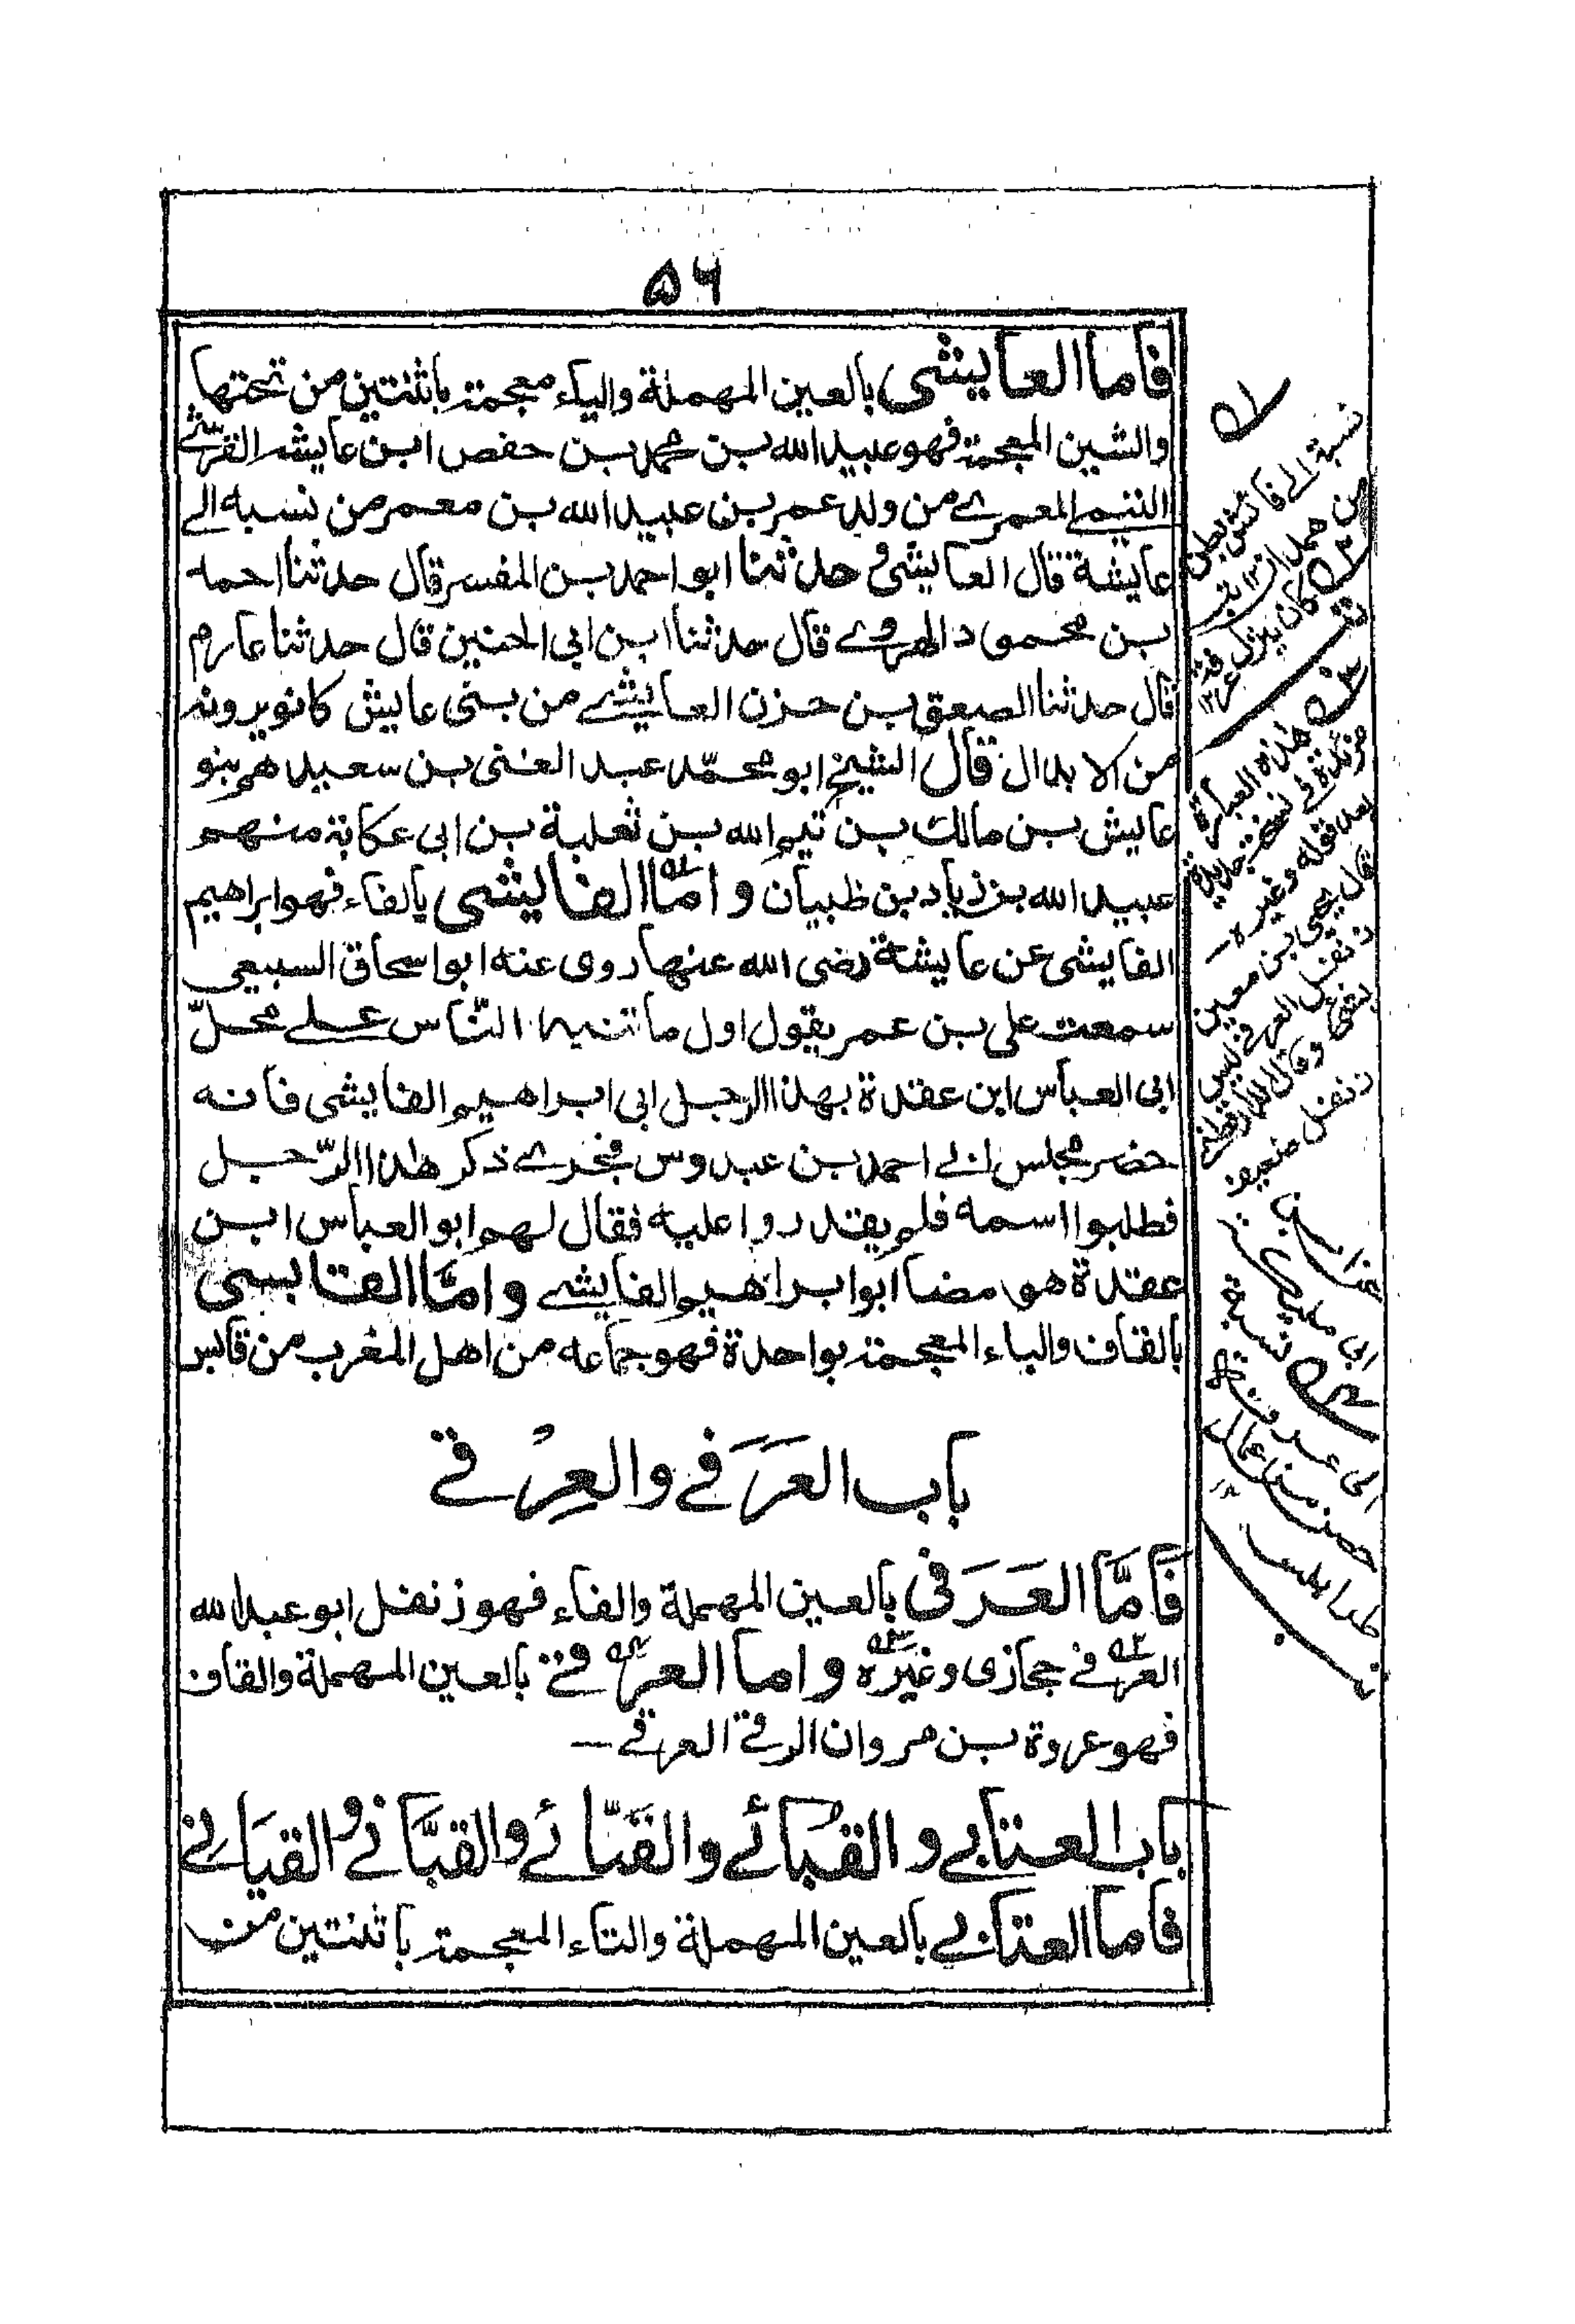 ۵۶
فاما العايشى بالعين المهملة والياء معجمة باثنتين من تحتها
والشين المعجمة فهو عبيد الله بن محمد بن حفص ابن عايشه القرشے
التيمے المعمرے من ولد عمر بن عبيد الله بن معمر من نسبه الے
عايشة قال العايشى حدثنا ابو احمد بن المفسر قال حدثنا احمد
بن محمود الهروے قال حدثنا ابن ابي الحنين قال حدثنا عارم
قال حدثنا الصعق بن حزن العايشے من بنى عايش كانو يرونه
من الابدال قال الشيخ ابو محمّد عبد الغنى بن سعيد هم بنو
عايش بن مالك بن تيم الله بن ثعلبة بن ابى عكابة منهم
عبيد الله بن زياد بن ظبيان و امّا الفايشى بالفاء فهو ابراهيم
الفايشى عن عايشة رضى الله عنها روى عنه ابو اسحاق السبيعى
سمعت على بن عمر يقول اول ما تنبه النّاس علے محلّ
ابى العباس ابن عقدة بهذا الرجل ابى ابراهيم الفايشى فانه
حضر مجلس ابے احمد بن عبدوس فجرے ذكر هذا الرّجل
فطلبوا اسمه فلم يقدروا عليه فقال لهم ابو العباس ابن
عقدة هو مضا ابو ابراهيم الفايشے و امَّا القابسى
بالقاف والباء المعجمة بواحدة فهو جماعه من اهل المغرب من قابس
باب العَرَفے والعِرْقے
فَامَّا العَرَفى بالعين المهملة والفاء فهو زنفل ابو عبد الله
العرفے حجازى وغيره و اما العرقے بالعين المهملة والقاف
فهو عروة بن مروان الرقے العرقے —
باب العتابے و القُبائے والقَتّائے والقبَّانے و القيَانے
فاما العتابے بالعين المهملة والتاء المعجمة باثنتين من
نسبة الے فائش بطن
من همدان
كان ينزل
هذه العبارة
مزيدة فے نسخة جديدة
بعد قوله وغيره —
قال يحيى بن معين
زنفل العرفے ليس
بشئ وقال الدارقطنے
زنفل ضعيف
نسبة
الى عرقة
حصن من اعمال
طرابلس